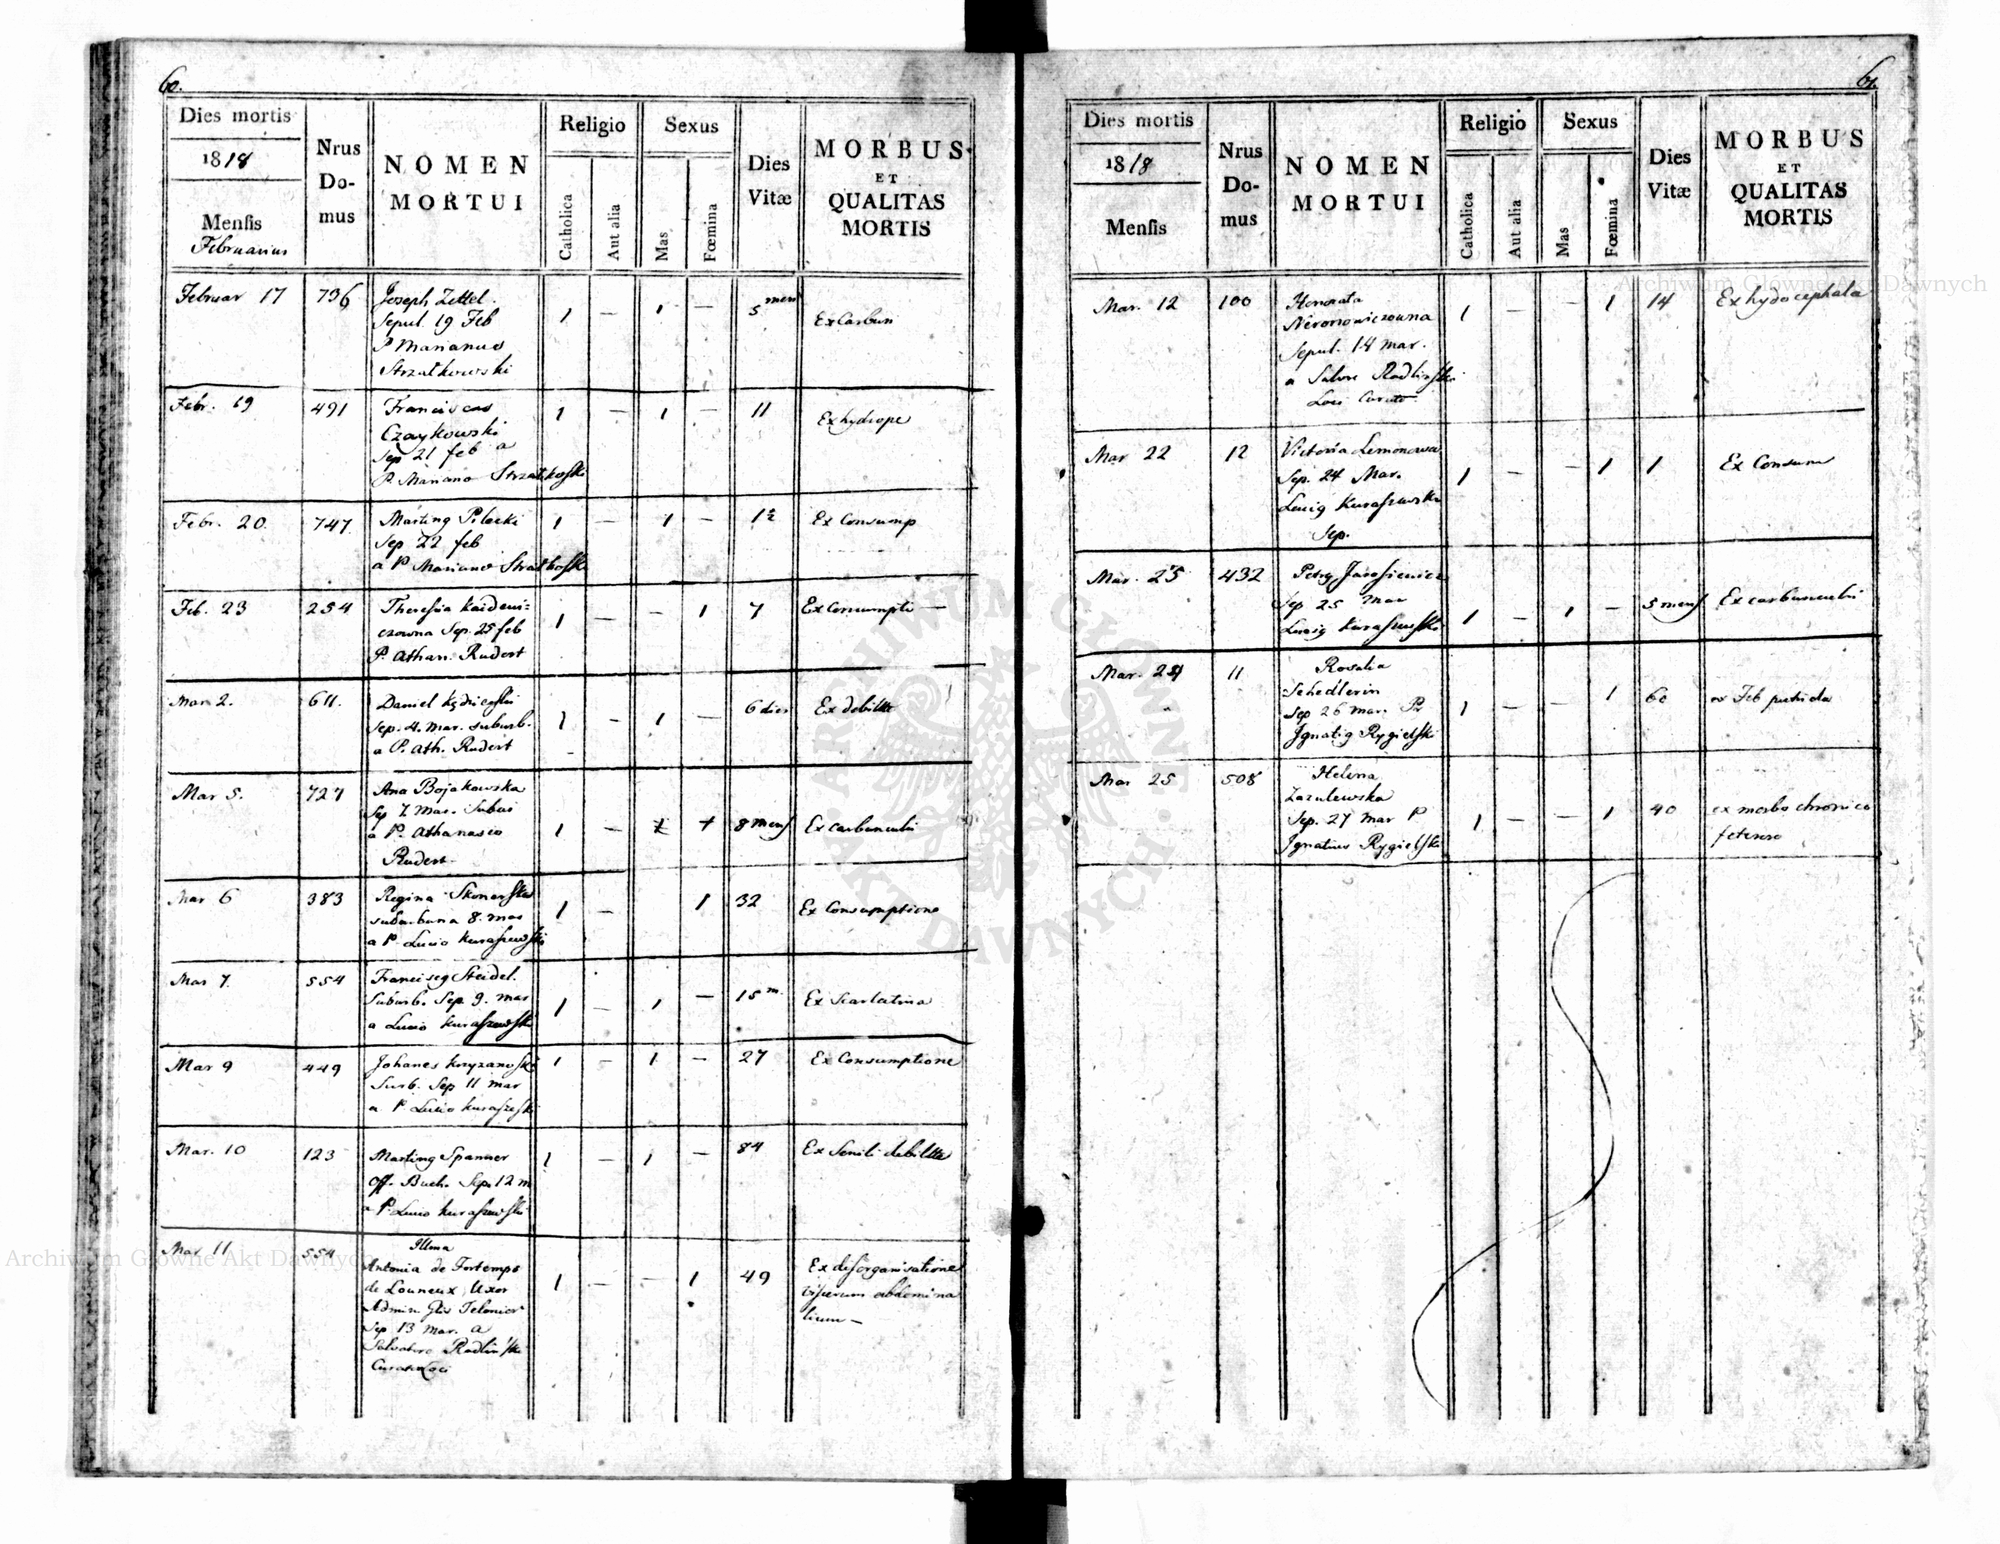 60.
Dies mortis
1818
Mensis
Februarius
Nrus Do-mus
NOMEN MORTUI
Religio
Catholica
Aut alia
Sexus
Mas
Fœmina
Dies Vitæ
MORBUS ET QUALITAS MORTIS
Februar 17 736 Joseph Zettel. 1 — 1 — 5 mens Ex Carbun
Sepul. 19 Feb
P Marianus
Strzałkowski
Febr. 19 491 Franciscus 1 — 1 — 11 Ex hydrope
Czaykowski
Sep 21 feb a
P. Mariano Strzałkoski
Febr. 20 747 Marting Pilecki 1 — 1 — 1½ Ex Consump
Sep 22 feb
a P Mariano
Feb. 23 254 Theresia 1 — — 1 7 Ex Consumpti —
czowna Sep. 25 feb
P. Athan. Rudert
Mar 2. 611. Daniel 1 — 1 — 6 dies Ex debiltte
Sep. 4. Mar. suburb.
a P. Ath. Rudert
Mar 5. 727 Ana Bojakowska 1 — 8 mens Ex carbunculi
Sep 7 Mar.
a P. Athanasio
Rudert
Mar 6 383 Regina 1 — 1 32 Ex Consumptione
suburbana 8. mar
a P Lucio Kuraszewski
Mar 7. 554 Franciseg Steidel. 1 — 1 — 15 m. Ex Scarlatina
Suburb. Sep 9. mar
a Lucio Kuraszewski
Mar 9 449 Johanes 1 — 1 — 27 Ex Consumptione
Surb. Sep 11 mar
a P. Lucio
Mar. 10 123 Marting Spanner 1 — 1 — 84 Ex Senili debiltte
off. Buch. Sep. 12 m
a P. Lucio Kuraszewski
Mar 11 554 Illma 1 — — 1 49 Ex desorganisatione
Antonia de Fortemps viscerum abdomina
de Louneux Uxor lium —
Admin. Glis
Sep 13 Mar. a
Salvatore Radliński
Curato Loci
61.
Dies mortis
1818
Mensis
Nrus Do-mus
NOMEN MORTUI
Religio
Catholica
Aut alia
Sexus
Mas
Fœmina
Dies Vitæ
MORBUS ET QUALITAS MORTIS
Mar. 12 100 Honorata 1 — — 1 14 Ex hydocephala
Sepul. 14 mar.
a Salvre Radliński
Loci Curato
Mar 22 12 Victoria Lemonowa 1 — — 1 1 Ex Consum
Sep. 24 Mar.
Lucig Kuraszewski
Sep.
Mar. 23 432 Petrg 1 — 1 — 5 mens Ex carbunculi
Sep 25 Mar
Lucig Kuraszewski
Mar. 24 11 Rosalia 1 — — 1 60 ex Feb putrida
Schedlerin
Sep 26 mar. Pr
Ignatig Rygielski
Mar 25 508 Helena 1 — — 1 40 ex morbo chronico
Zazulewska
Sep. 27 mar P
Ignatius Rygielski
Archiwum Główne Akt Dawnych
Archiwum Główne Akt Dawnych
ARCHIWUM GŁÓWNE · AKT DAWNYCH ·